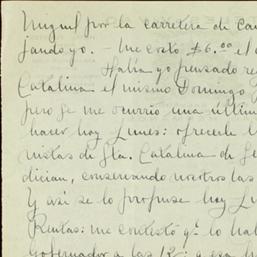 Miguel por la carretera de Ca
jando yo. - Me costó $6.00 el
Había yo pensado re
Catalina el mismo Domingo
pero se me ocurrió una últim
hacer hoy Lunes: ofrecerle l
nistas de Sta. Catalina de Se
dician, conservando nuestros las
Y así se lo propuse hoy Lu
Rentas: me contestó q.e lo ha
Gobernador a las 12: a esa h